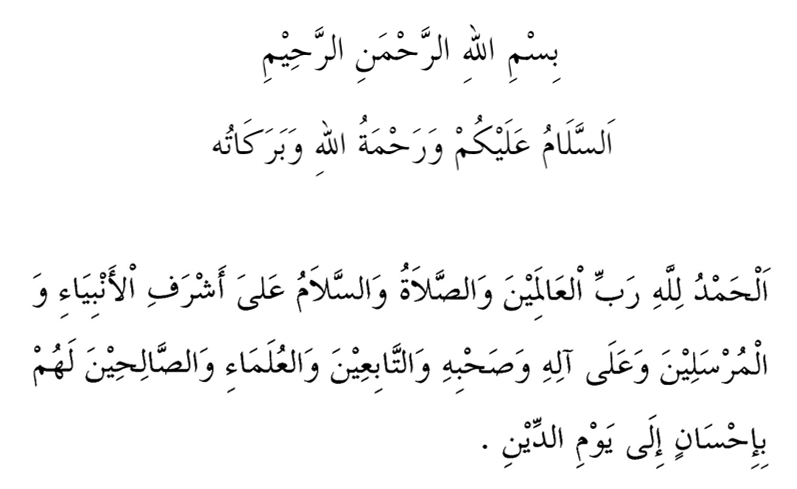 بِسْمِ اللهِ الرَّحْمَنِ الرَّحِيْمِ
اَلسَّلَامُ عَلَيْكُمْ وَرَحْمَةُ اللهِ وَبَرَكَاتُه
اَلْحَمْدُ لِلَّهِ رَبِّ الْعَالَمِيْنَ وَالصَّلاَةُ وَالسَّلاَمُ عَلىَ أَشْرَفِ اْلأَنْبِيَاءِ وَ
الْمُرْسَلِيْنَ وَعَلَى آلِهِ وَصَحْبِهِ وَالتَّابِعِيْنَ وَالعُلَمَاءِ وَالصَّالِحِيْنَ لَهُمْ
بِإِحْسَانٍ إِلَى يَوْمِ الدِّيْنِ .